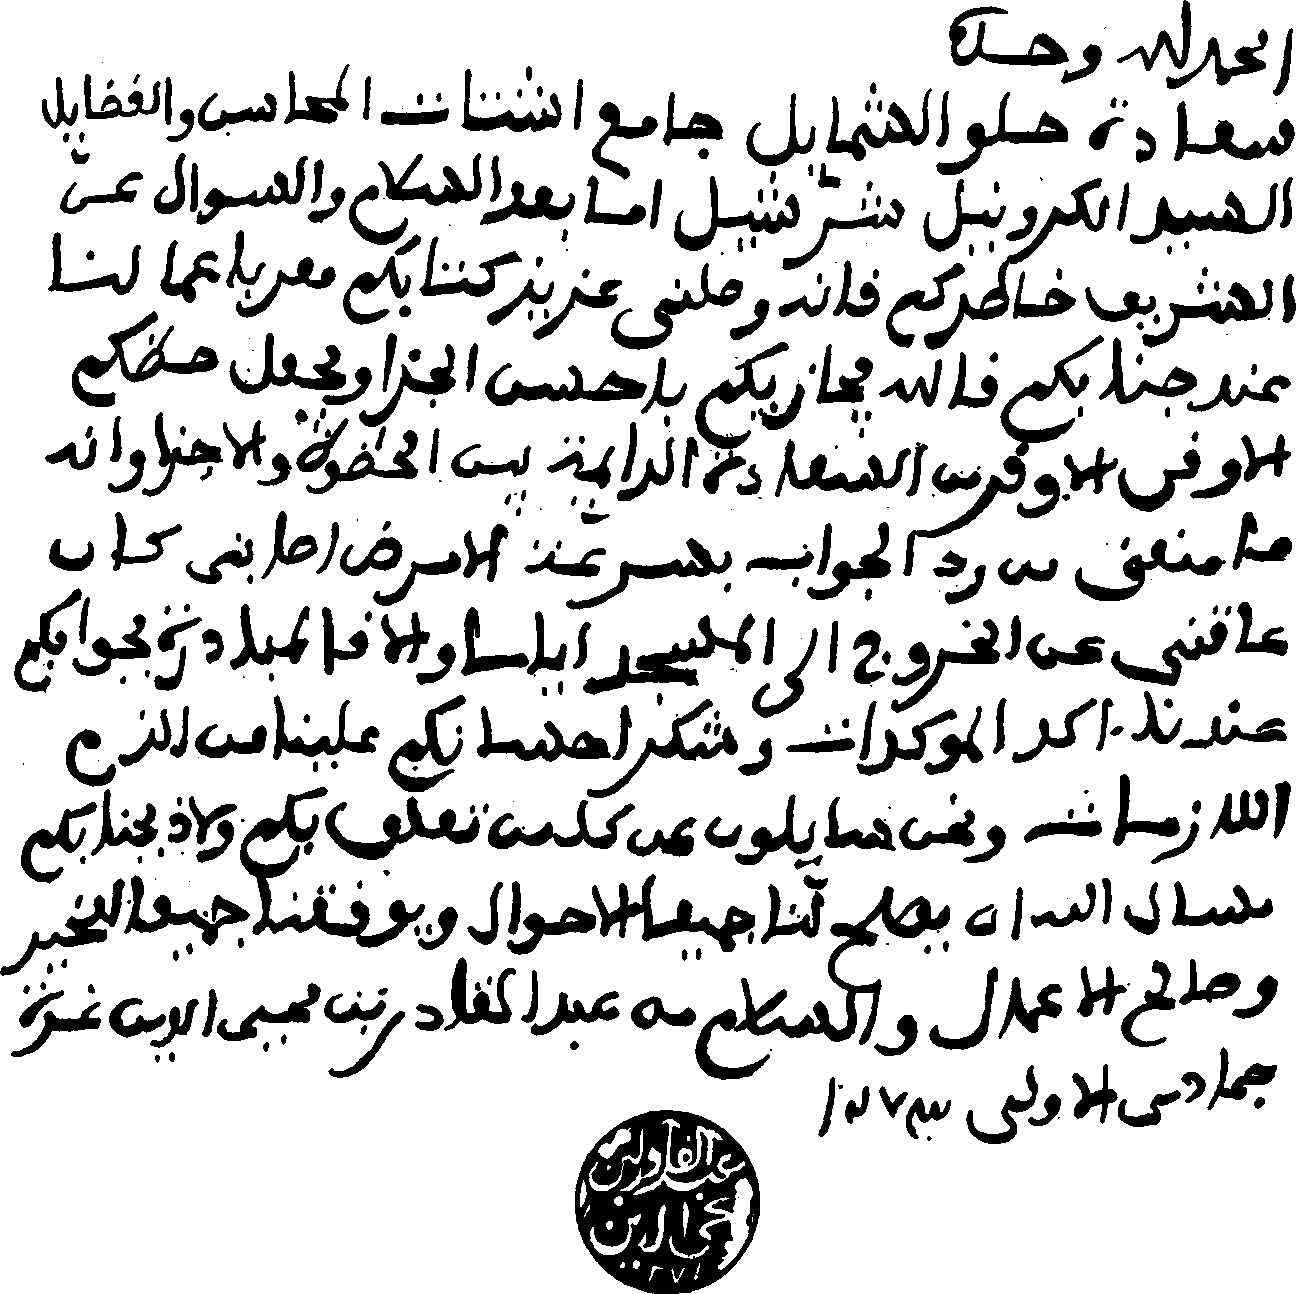 الحمد لله وحده
سعادة حلو الشمايل جامع اشتات المحاسن والفضايل
السيد الكرونيل شرشيل اما بعد السلام والسوال عن
الشريف خاطركم فانه وصلني عزيز كتابكم معربا عما لنا
عند جنابكم فالله يجازيكم باحسن الجزا ويجعل حظكم
الاوفى الاوفر من السعادة الدايمة بين الحضوة والاجزا وانه
ما منعني من رد الجواب بسرعة الا مرض اصابني كان
عاقني عن الخروج الى المسجد اياما والا فالمبادرة بجوابكم
عندنا اكد الموكدات وشكر احسانكم علينا من الزم
اللازمات ونحن سايلون عن كل من تعلق بكم ولاذ بجنابكم
نسال الله ان يصلح لنا جميعا الاحوال ويوفقنا جميعا لخير
وصالح الاعمال والسلام من عبد القادر بن محيى الدين غرة
جمادى الاولى سنة
عبد القادر بن
محي الدين